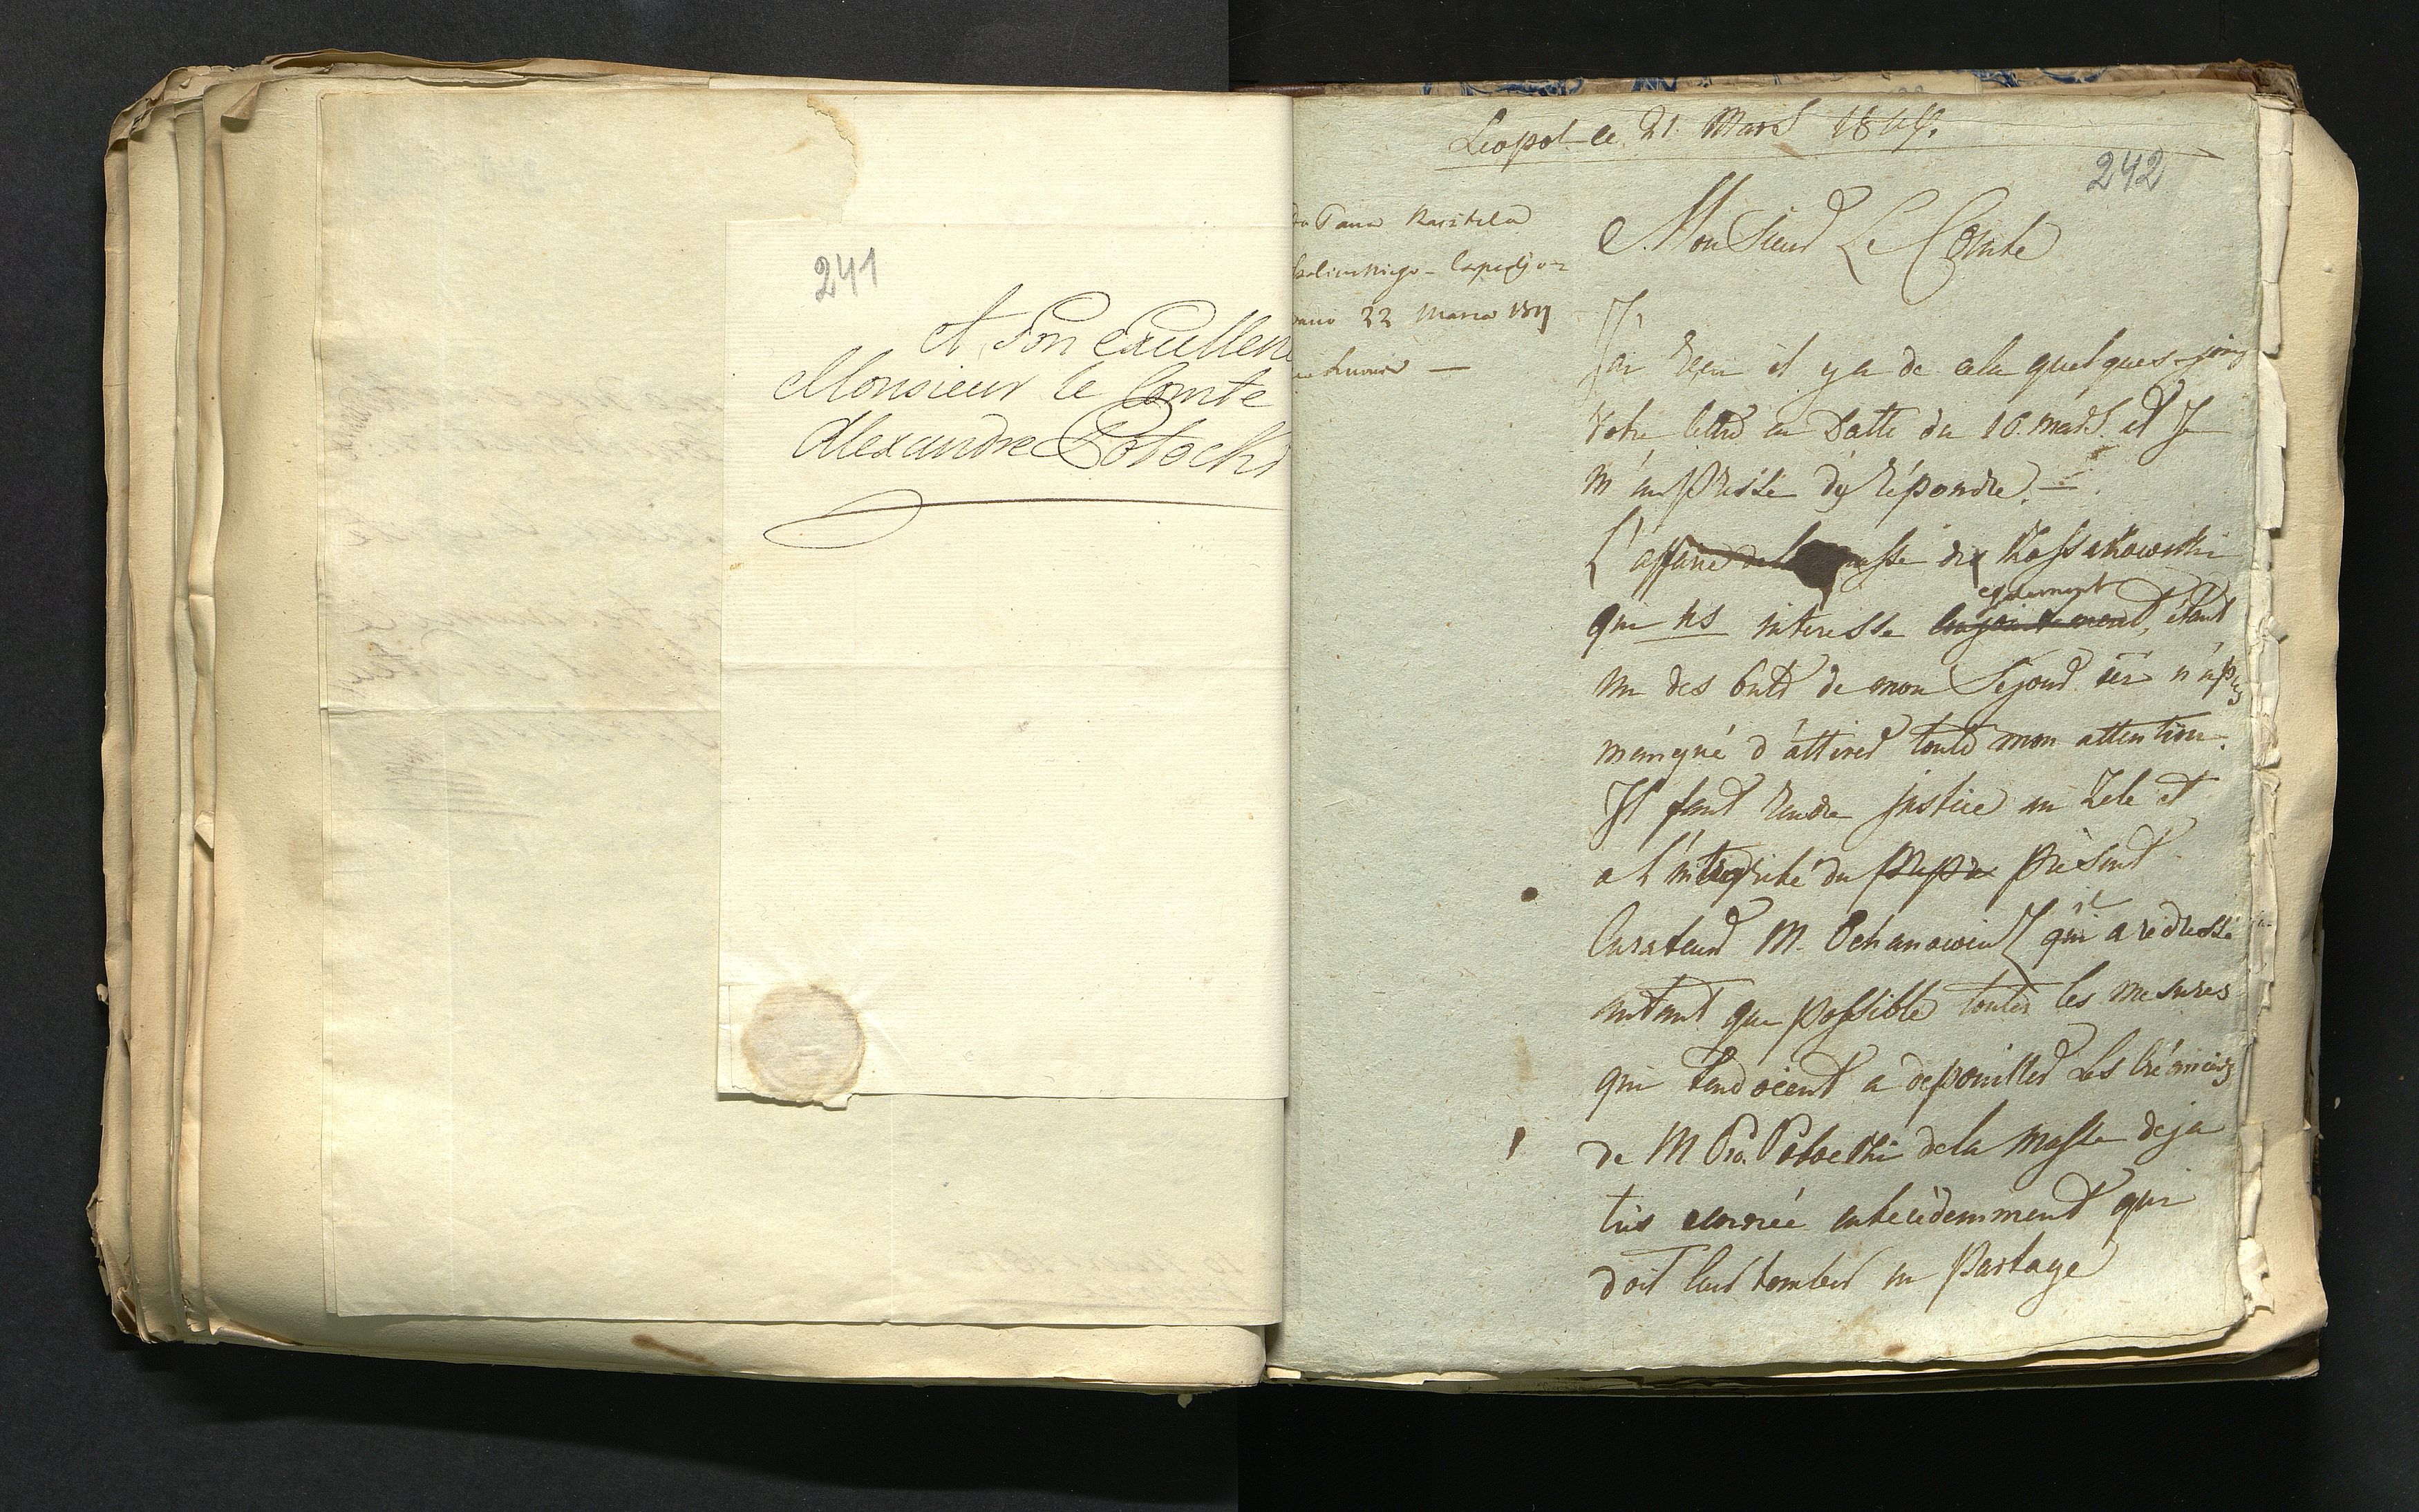 241
A Son Excellenc
Monsieur le Comte
Alexandre Potocki
Leopol le 21 Mars
242
Monsieur Le Comte
do Pana Kasztela
22 Marca
J'ai reçu il y a de cela quelques jours
Votre lettre en Datte du 10. mars. et Je
m'empresse d'y répondre. —
L'affaire de la masse de Kossakowski
qui ns interesse egalement, étant
un des buts de mon Sejour ici n'a pas
manqué d'attirer toute mon attention.
Il faut rendre justice au Zele et
a l'integrité du présent
Curateur M. Ochanowicz qui a redressé
autant que possible toutes les mesures
qui tendoient a depouiller Les Créanciers
de M Pro. Potocki de la Masse deja
très antécédemment qui
doit leur tomber en Partage